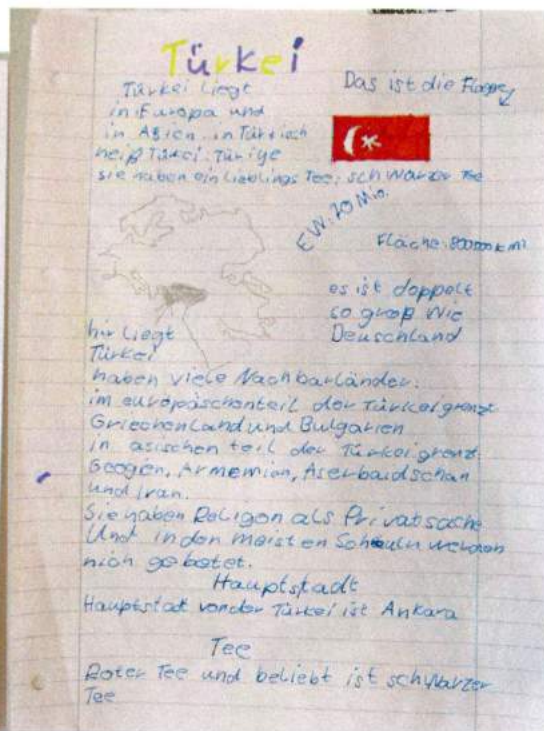 Türkei
Türkei liegt
in Europa und
in Asien in Türkisch
heiß Türkei: Türkiye
sie haben ein Lieblings Tee; schwarzer Tee
Das ist die Flagge
EW: 70 Mio.
Fläche: 800000 km²
es ist doppelt
so groß wie
Deuschland
hir liegt
Türkei
haben viele Nachbarländer.
im europäschenteil der Türkei grenzt
Griechenland und Bulgarien
in asischen teil der Türkei grenzt
Geogien, Armemian, Aserbaidschan
und Iran.
Sie haben Religon als Privatsache
Und in den meisten Schouln werden
nich gebetet.
Hauptstadt
Hauptstat von der Türkei ist Ankara
Tee
Roter Tee und beliebt ist schwarzer
Tee